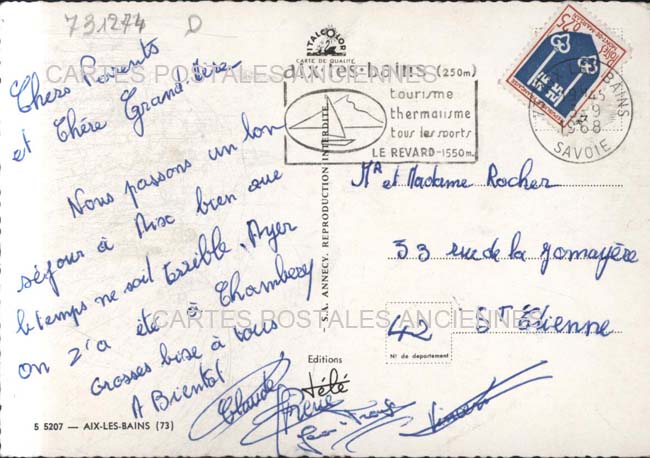 731274 D
ITALCOLOR
CARTE DE QUALITÉ
CARTES POSTALES ANCIENNES
aix-les-bains (250m)
tourisme
thermalisme
tous les sports
LE REVARD-1550m.
0,25
BAINS
1968
SAVOIE
Chers Parents
et Chère Grand-Mère
Nous passons un bon
séjour à Aix bien que
le temps ne soit terrible. Ayer
on z'a été à Chambery
Grosses bise à tous
A Bientot
Claude
Irène
Vincent
S.A. ANNECY. REPRODUCTION INTERDITE
Mr et Madame Rocher
33 rue de la Jomayère
42 St Étienne
N° de département
CARTES POSTALES ANCIENNES
Editions
télé
5 5207 — AIX-LES-BAINS (73)